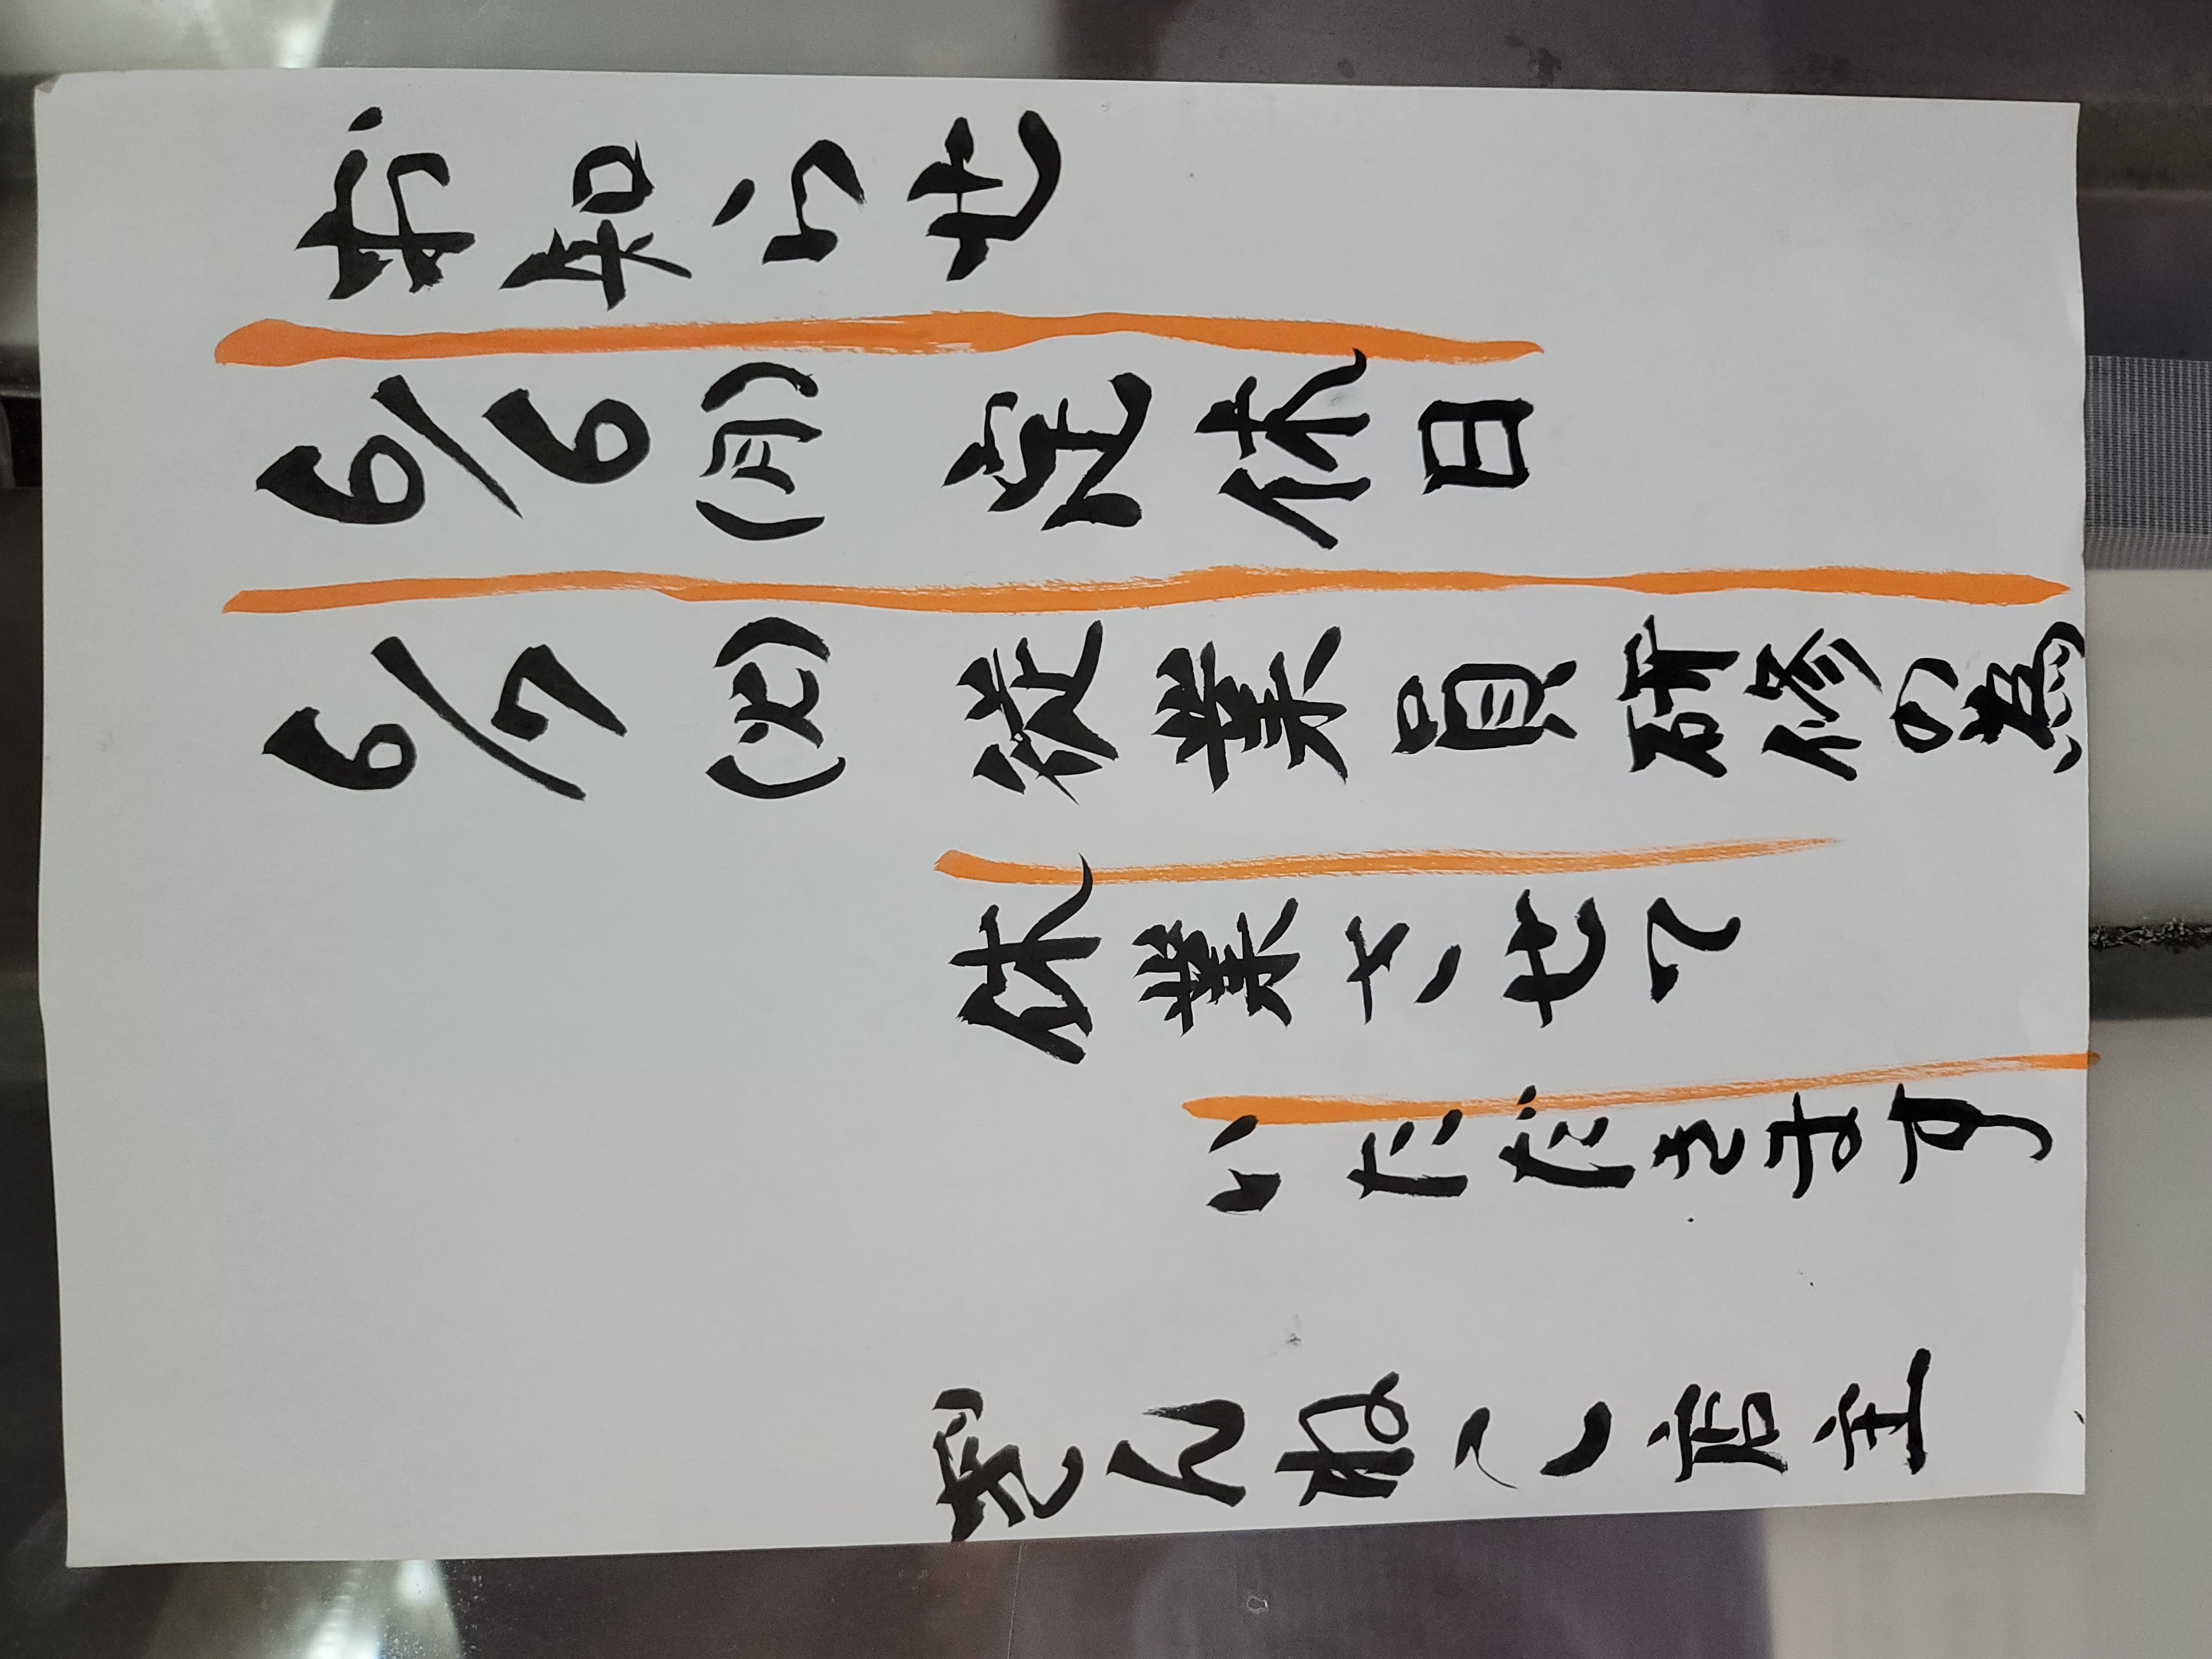 お知らせ
6/6(月) 定休日
6/7(火) 従業員研修の為
休業させて
いただきます
店主